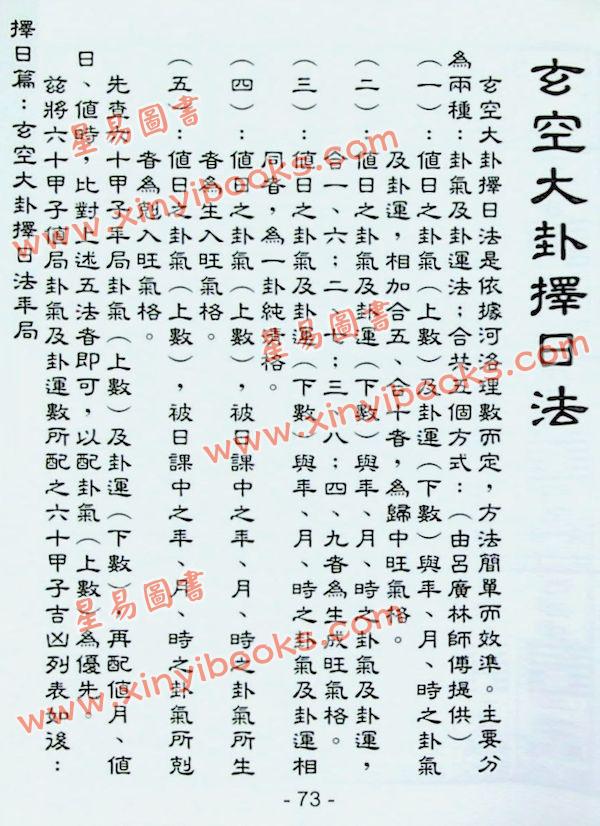 玄空大卦擇日法
玄空大卦擇日法是依據河洛理數而定，方法簡單而效準。主要分
為兩種：卦氣及卦運法；合共五個方式：（由呂廣林師傅提供）
（一）：值日之卦氣（上數）及卦運（下數）與年、月、時之卦氣
及卦運，相加合五、合十者，為歸中旺氣格。
（二）：值日之卦氣及卦運（下數）與年、月、時之卦氣及卦運，
合一、六；二、七；三、八；四、九者為生成旺氣格。
（三）：值日之卦氣（上數）及卦運（下數）與年、月、時之卦氣及卦運相
同者，為一卦純清格。
（四）：值日之卦氣（上數），被日課中之年、月、時之卦氣所生
者為生入旺氣格。
（五）：值日之卦氣（上數），被日課中之年、月、時之卦氣所剋
者為剋入旺氣格。
先查六十甲子年局卦氣（上數）及卦運（下數），再配值月、值
日、值時，比對上述五法者即可，以配卦氣（上數）為優先。
茲將六十甲子值局卦氣及卦運數所配之六十甲子吉凶列表如後：
擇日篇：玄空大卦擇日法年局
- 73 -
星易圖書
www.xinyibooks.com
星易圖書
www.xinyibooks.com
星易圖書
www.xinyibooks.com